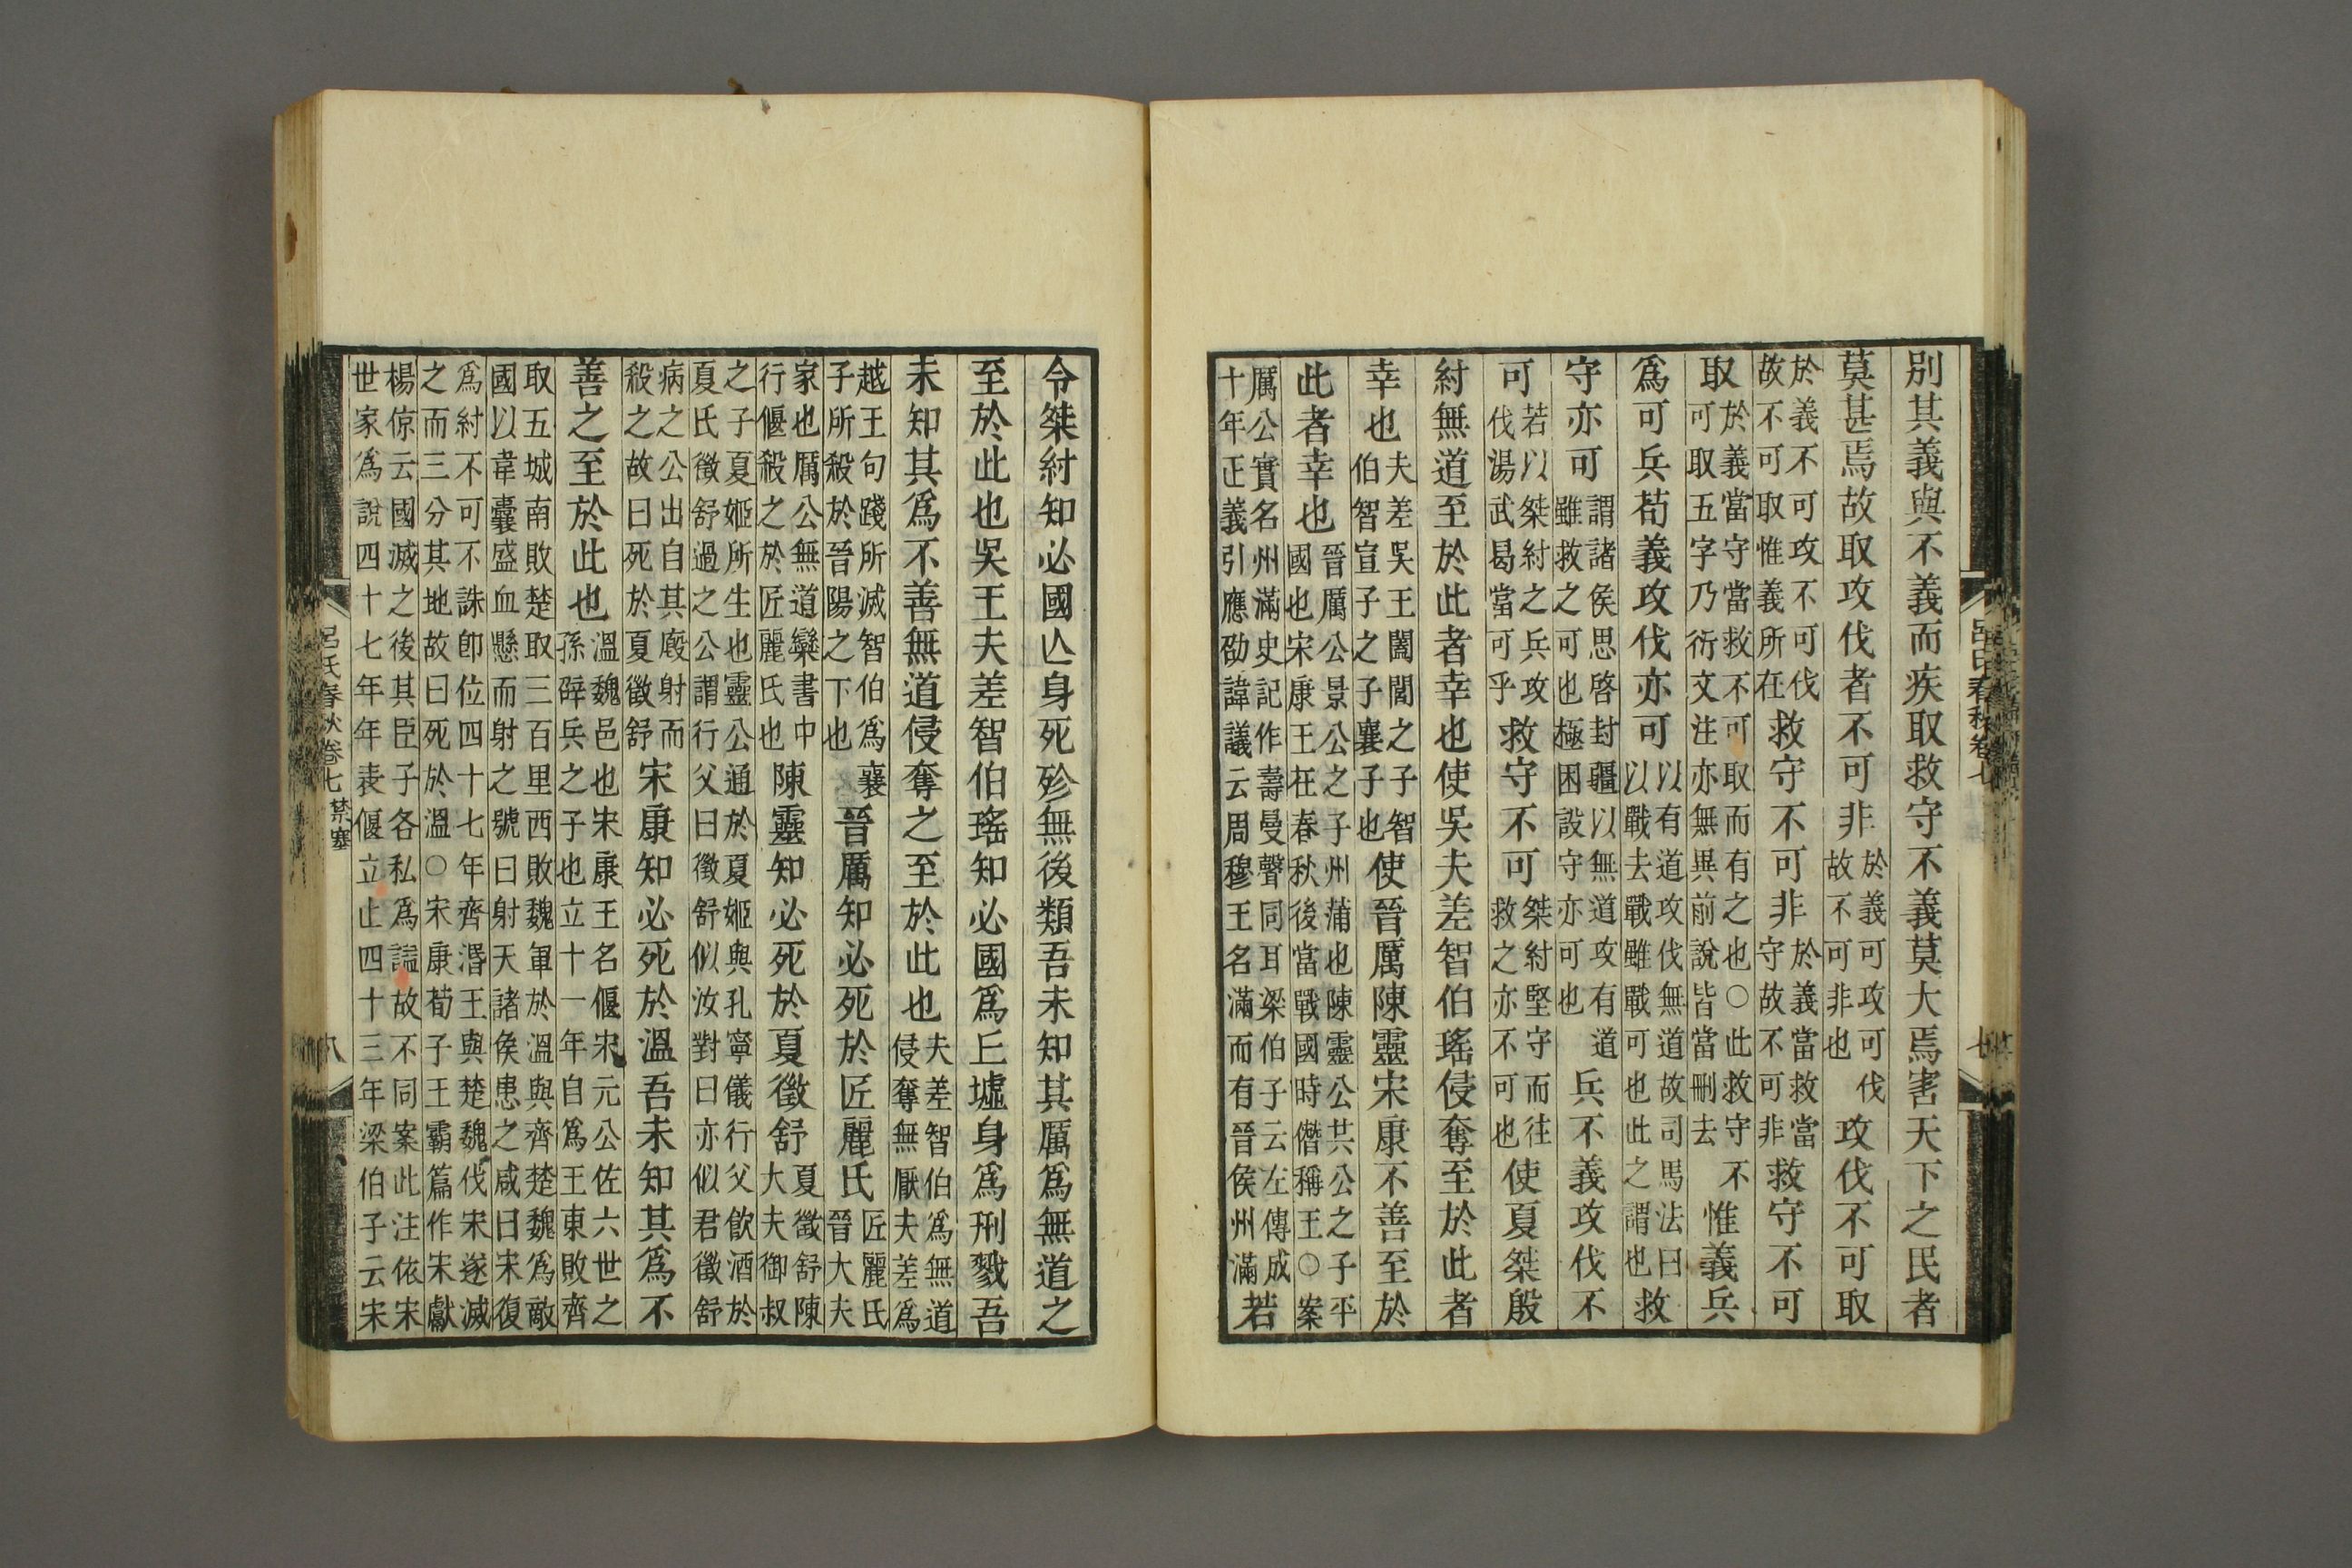 別其義與不義而疾取救守不義莫大焉害天下之民者
莫甚焉故取攻伐者不可非
於義可攻可伐
故不可非也
攻伐不可取
於義不可攻不可伐
故不可取惟義所在
救守不可非
於義當救當
守故不可非
救守不可
取
於義當守當救不可取而有之也○此救守不
可取五字乃衍文注亦無異前說皆當刪去
惟義兵
爲可兵苟義攻伐亦可
以有道攻伐無道故司馬法曰
以戰去戰雖戰可也此之謂也
救
守亦可
謂諸侯思啓封疆以無道攻有道
雖救之可也極困設守亦可也
兵不義攻伐不
可
若以桀紂之兵攻
伐湯武曷當可乎
救守不可
桀紂堅守而往
救之亦不可也
使夏桀殷
紂無道至於此者幸也使吳夫差智伯瑤侵奪至於此者
幸也
夫差吳王闔閭之子智
伯智宣子之子襄子也
使晉厲陳靈宋康不善至於
此者幸也
晉厲公景公之子州蒲也陳靈公共公之子平
國也宋康王在春秋後當戰國時僭稱王○案
厲公實名州滿史記作壽曼聲同耳梁伯子云左傳成
十年正義引應劭諱議云周穆王名滿而有晉侯州滿
若
令桀紂知必國亾身死殄無後類吾未知其厲爲無道之
至於此也吳王夫差智伯瑤知必國爲丘墟身爲刑戮吾
未知其爲不善無道侵奪之至於此也
夫差智伯爲無道
侵奪無厭夫差爲
越王句踐所滅智伯爲襄
子所殺於晉陽之下也
晉厲知必死於匠麗氏
匠麗氏
晉大夫
家也厲公無道欒書中
行偃殺之於匠麗氏也
陳靈知必死於夏徵舒
夏徵舒陳
大夫御叔
之子夏姬所生也靈公通於夏姬與孔寧儀行父飲酒於
夏氏徵舒過之公謂行父曰徵舒似汝對曰亦似君徵舒
病之公出自其廄射而
殺之故曰死於夏徵舒
宋康知必死於溫吾未知其爲不
善之至於此也
溫魏邑也宋康王名偃宋元公佐六世之
孫辟兵之子也立十一年自爲王東敗齊
取五城南敗楚取三百里西敗魏軍於溫與齊楚魏爲敵
國以韋囊盛血懸而射之號曰射天諸侯患之咸曰宋復
爲紂不可不誅卽位四十七年齊湣王與楚魏伐宋遂滅
之而三分其地故曰死於溫○宋康荀子王霸篇作宋獻
楊倞云國滅之後其臣子各私爲諡故不同案此注依宋
世家爲說四十七年年表偃立止四十三年梁伯子云宋
呂氏春秋卷七 禁塞
八